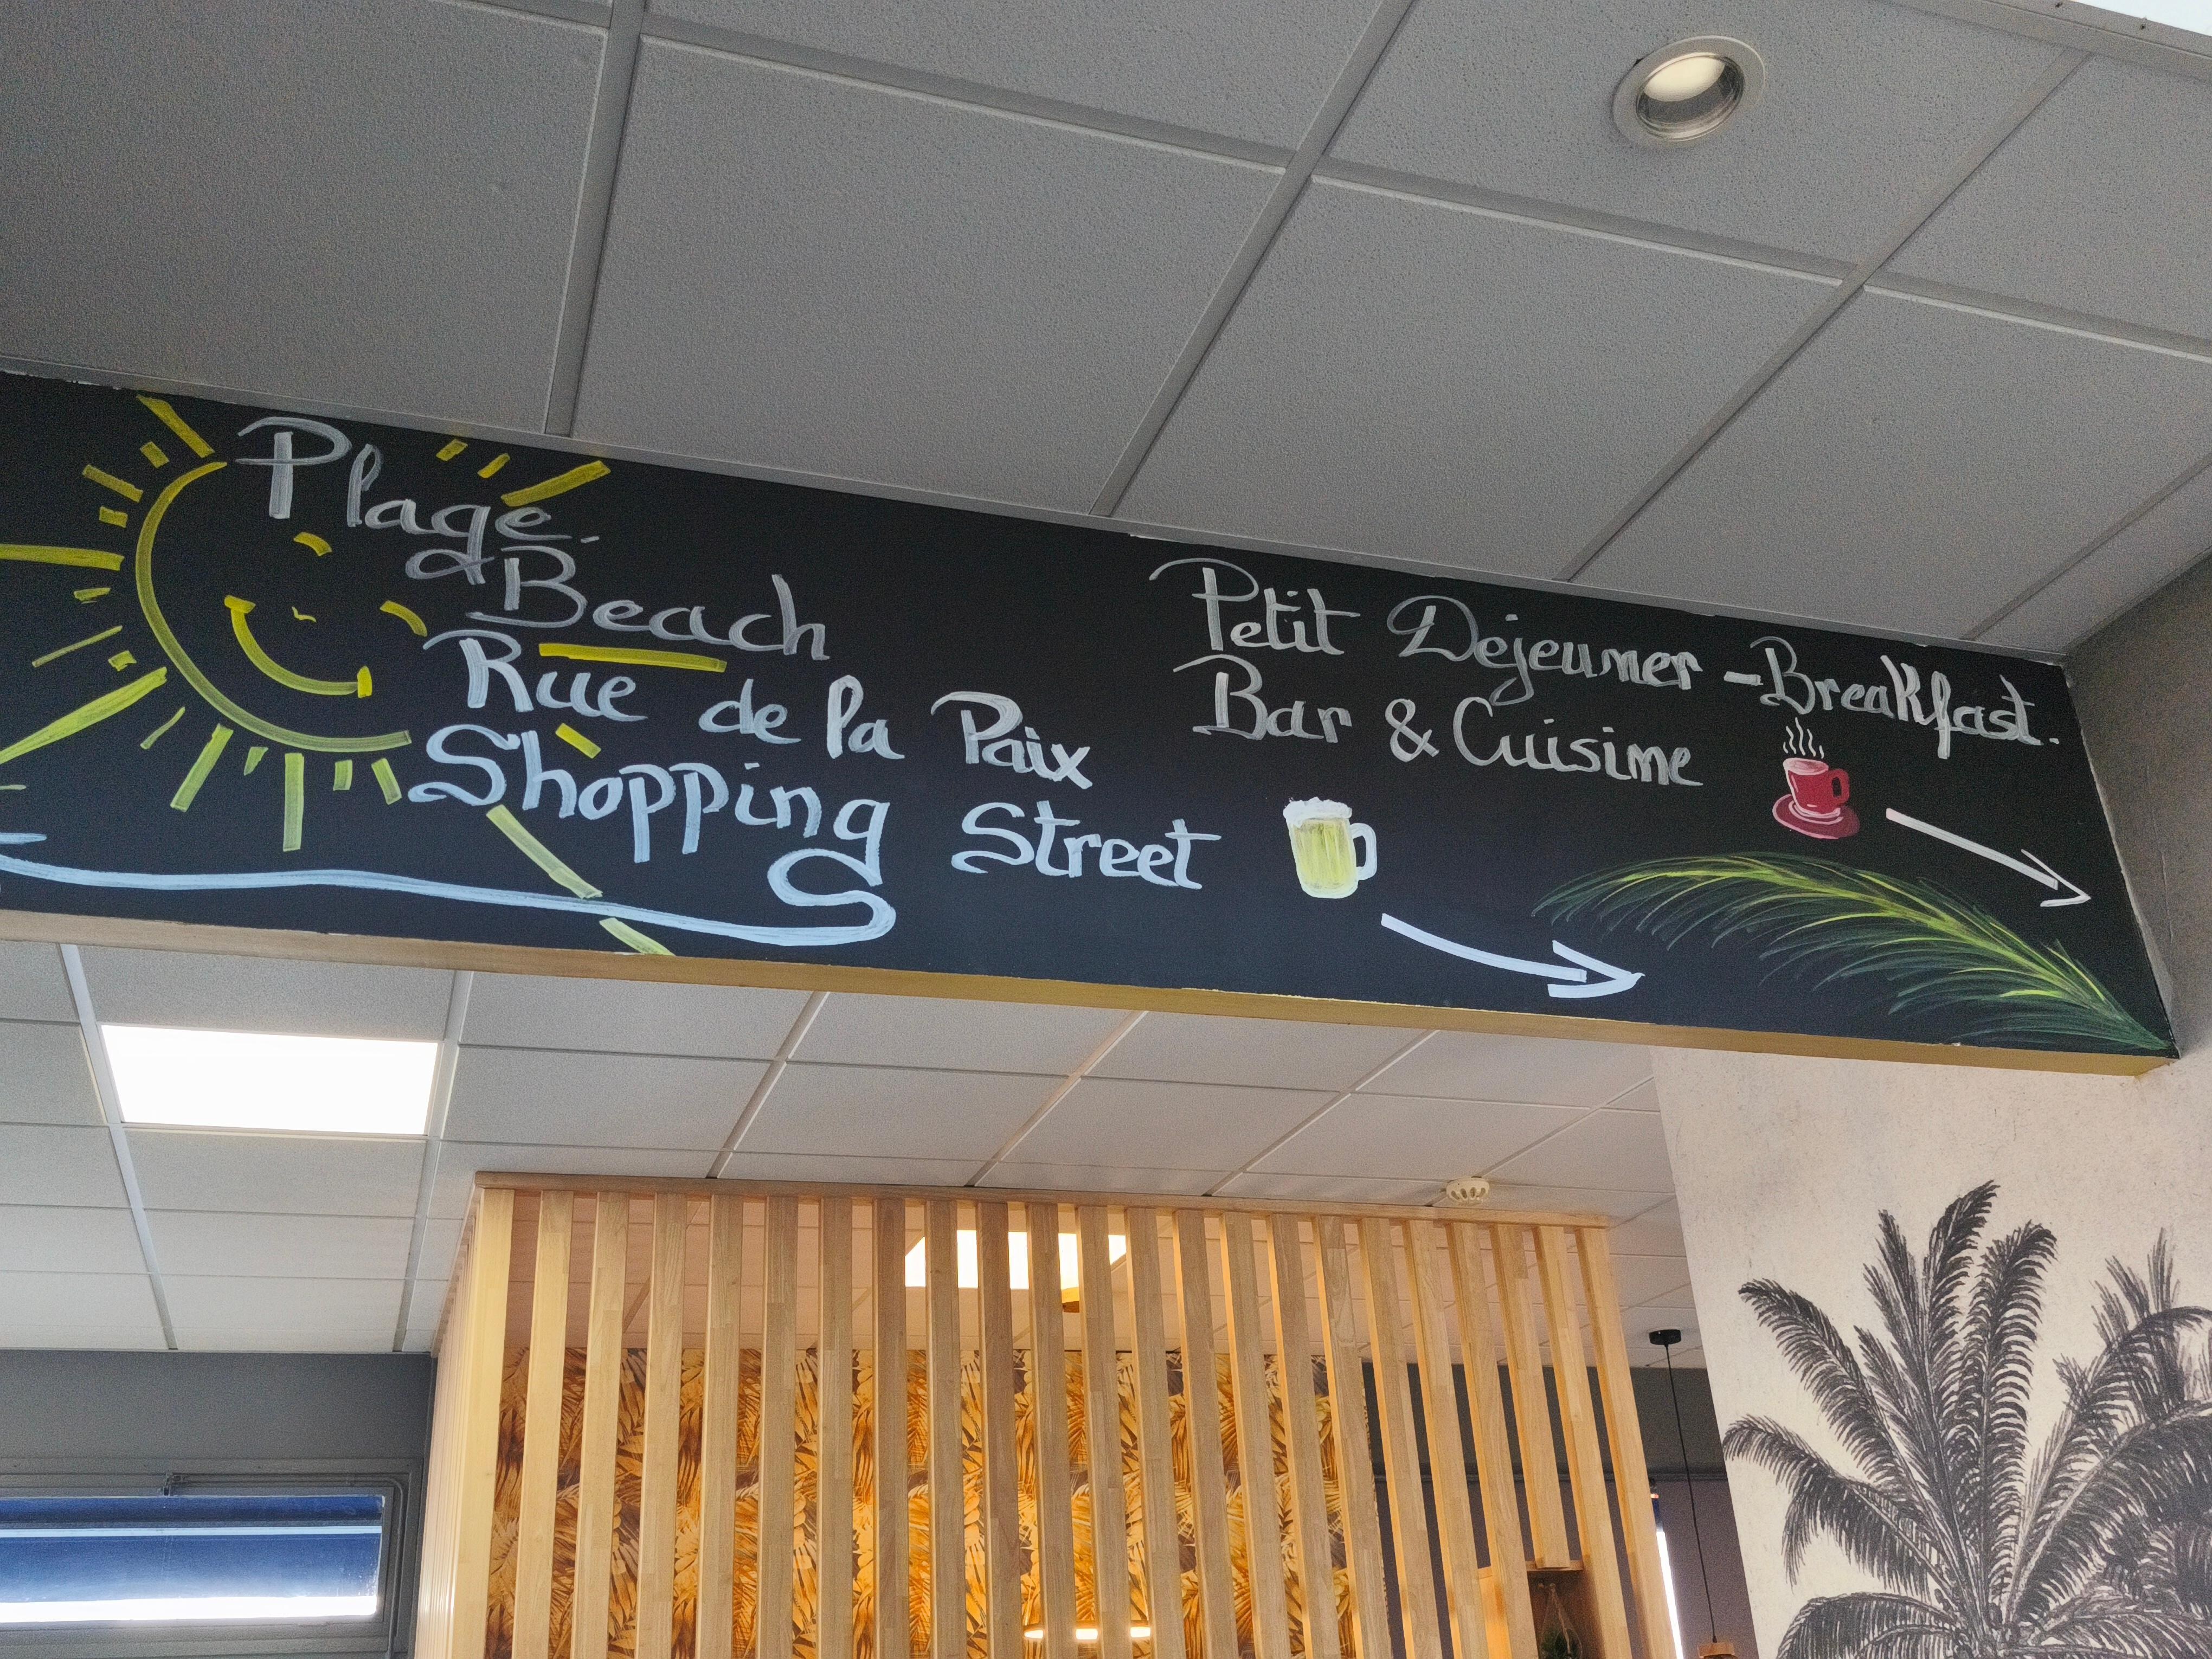 Plage.
Beach
Rue de la Paix
Shopping Street
Petit Dejeuner - Breakfast.
Bar & Cuisine